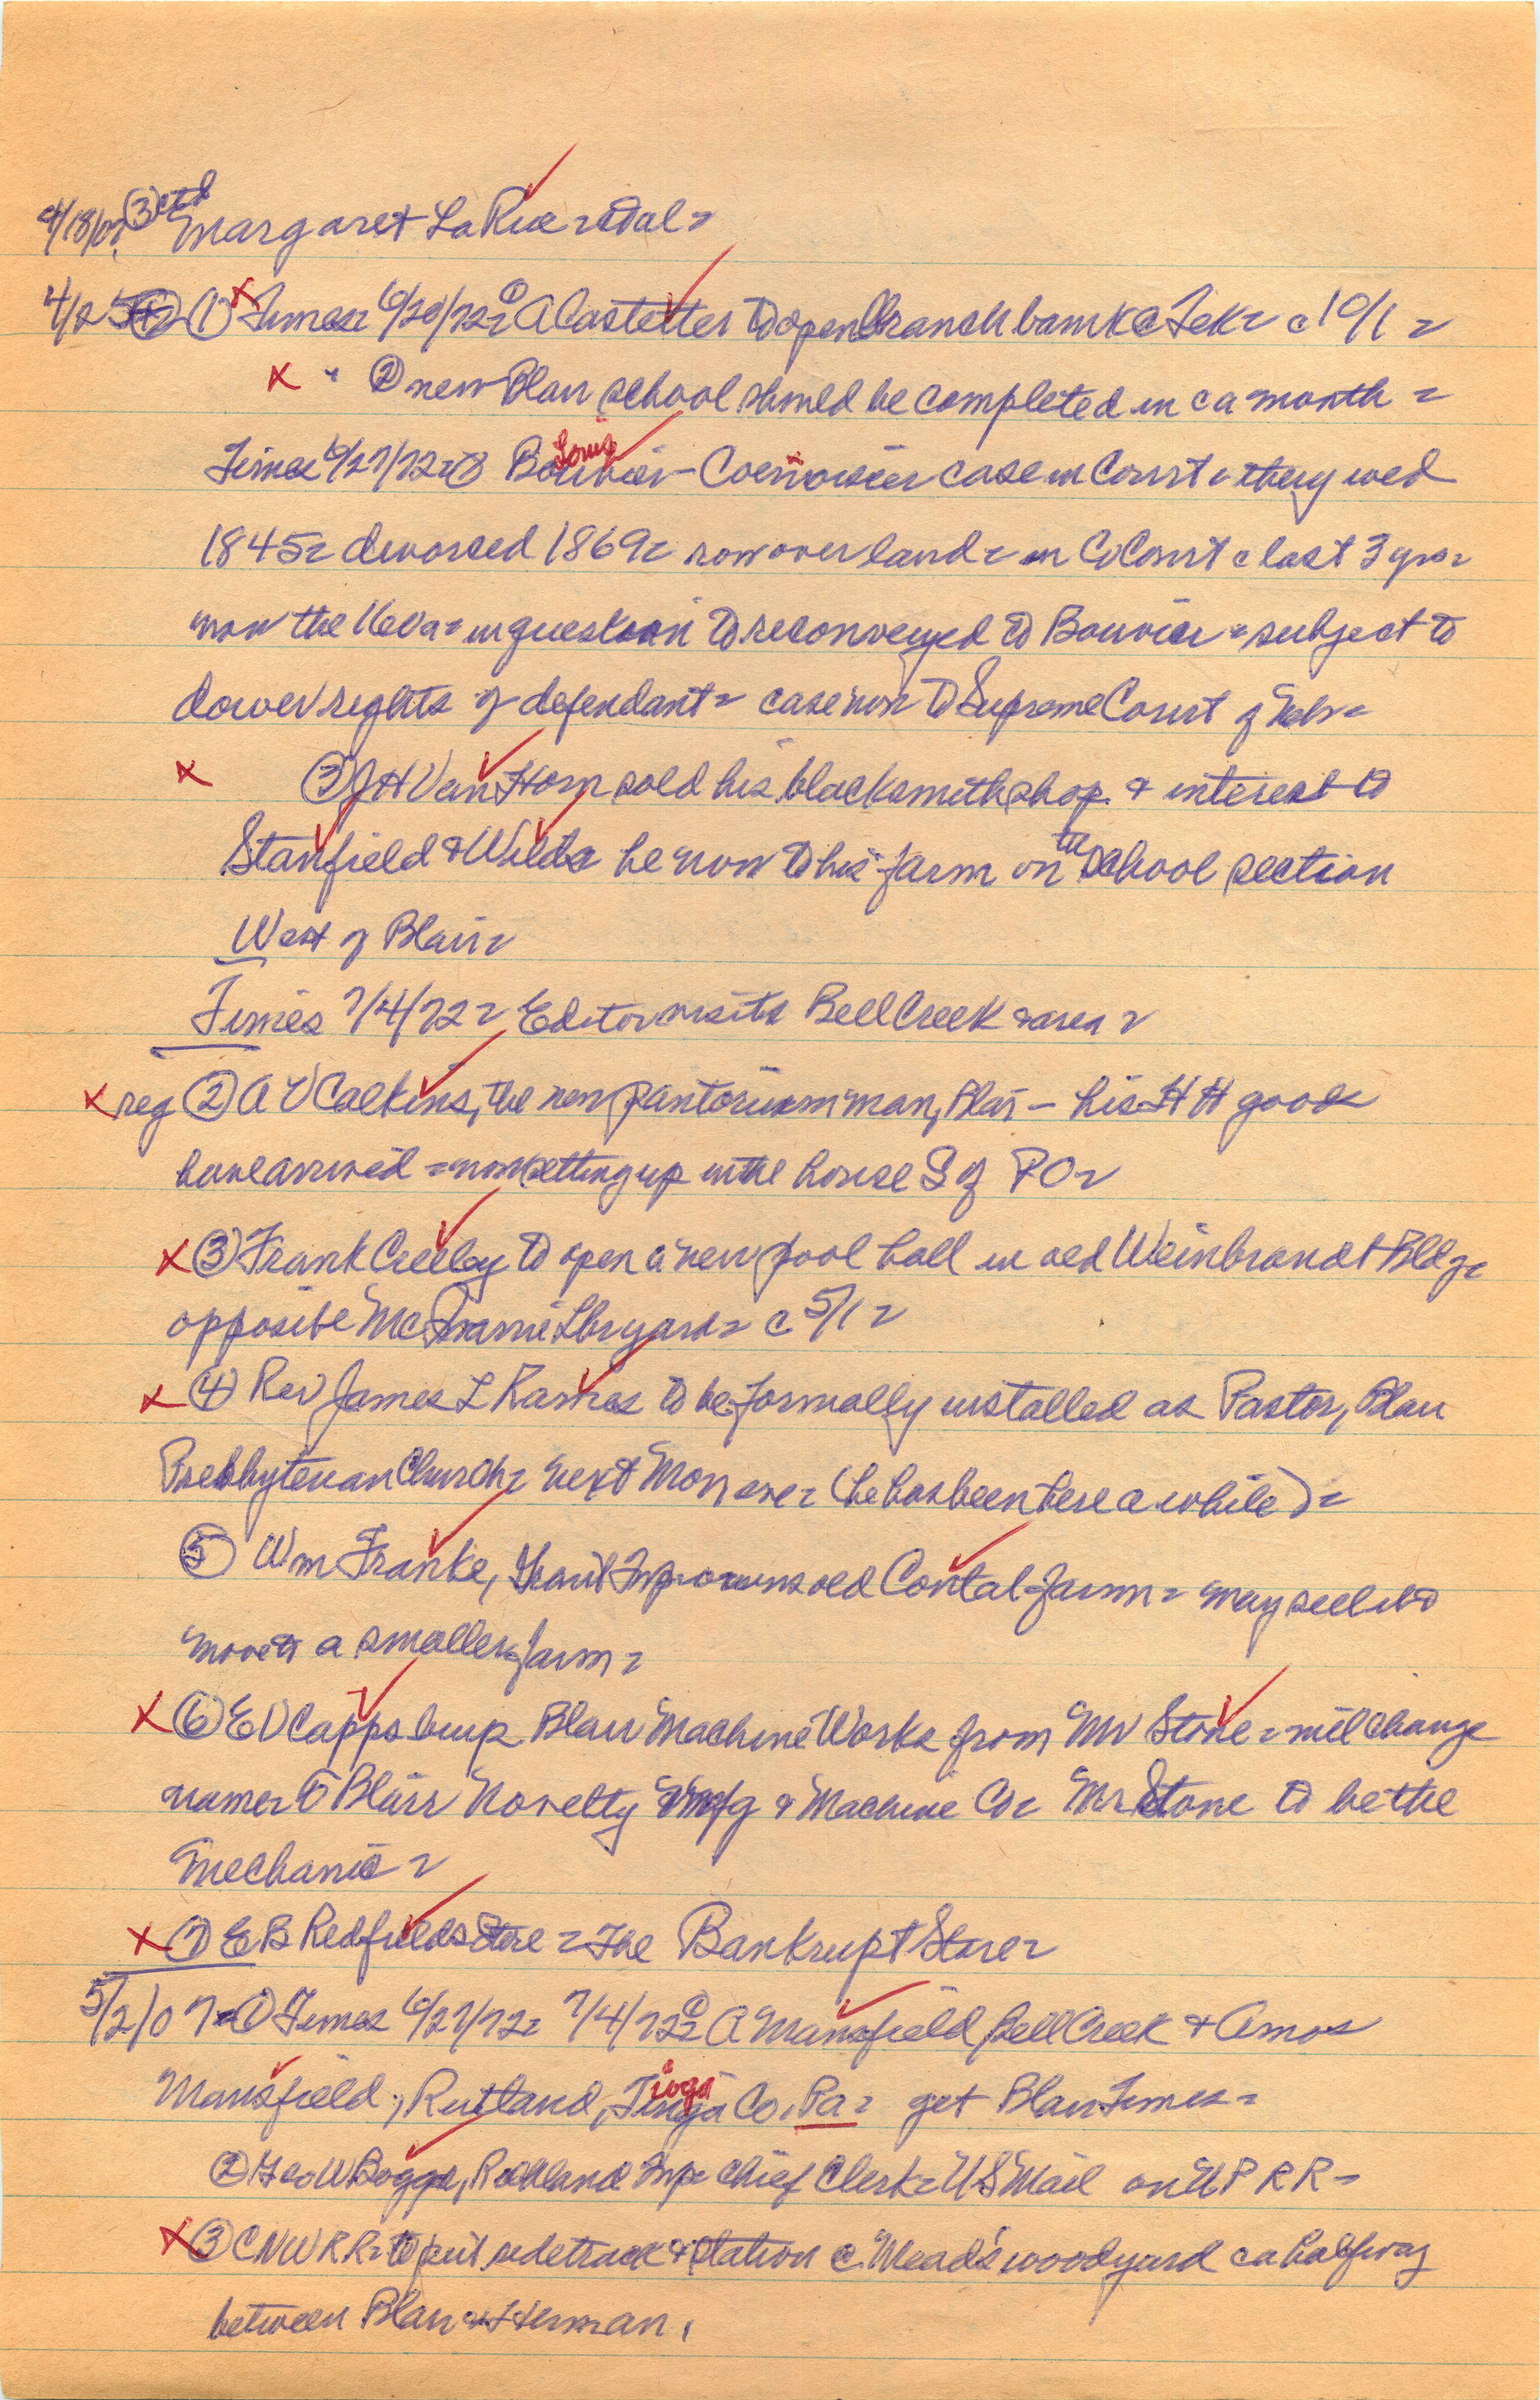 4/18/07 (3) ctd Margaret LaRue et al =
4/25 (1) Times 6/20/72 = (1) A Castetter to open Branch bank @ Tek = c 10/1 =
" (2) new Blair school should be completed in ca month =
Times 6/27/72 = Louis Bouvier - case in Court = they wed
1845 = divorced 1869 = row over land = in Co Court c last 3 yrs =
now the 160 a = in question to reconveyed to Bouvier = subject to
dower rights of defendant = case now to Supreme Court of Neb =
(3) J H Van Horn sold his blacksmith shop & interest to
Stanfield & Wilds he now to his farm on the school section
West of Blair =
Times 7/4/72 = Editor visits Bell Creek & area =
reg (2) A V Calkins, the new pantorium man, Blair - his H H goods
have arrived = now setting up in the house S of P O =
(3) Frank Creeley to open a new pool hall in old Weinbrandt Bldg =
opposite Lbryard = c 5/1 =
(4) Rev James L to be formally installed as Pastor, Blair
Presbyterian Church = next Mon eve = (he has been here a while) =
(5) Wm Franke, Grant Twp owns old Contal farm = may sell it &
move to a smaller farm =
(6) E V Capps buys Blair Machine Works from Mr Stone = will change
name = to Blair Novelty Mfg & Machine Co = Mr Stone to be the
mechanic =
(7) E B Redfields Store = The Bankrupt Store =
5/2/07 = (1) Times 6/27/72 = 7/4/72 = (1) A Mansfield, Bell Creek & Amos
Mansfield, Rutland, Tioga ioga Co, Pa = get Blair Times =
(2) Geo W Boggs, Richland Twp = chief Clerk = US Mail on U P R R =
(3) C N W R R = to put sidetrack & station @ Mead's woodyard ca halfway
between Blair & Herman.